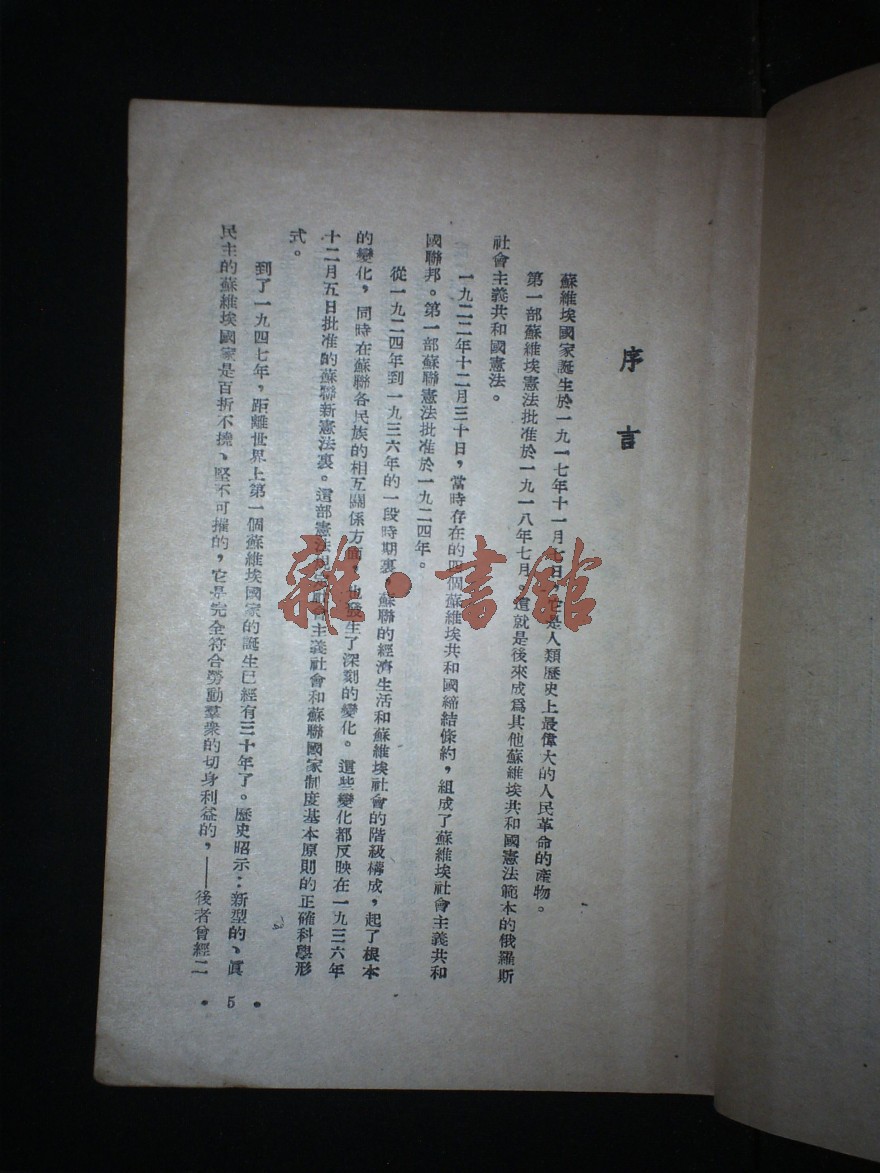 序言
蘇維埃國家誕生於一九一七年十一月七日，它是人類歷史上最偉大的人民革命的產物。
第一部蘇維埃憲法批准於一九一八年七月。這就是後來成爲其他蘇維埃共和國憲法範本的俄羅斯
社會主義共和國憲法。
一九二二年十二月三十日，當時存在的四個蘇維埃共和國締結條約，組成了蘇維埃社會主義共和
國聯邦。第一部蘇聯憲法批准於一九二四年。
從一九二四年到一九三六年的一段時期裏，蘇聯的經濟生活和蘇維埃社會的階級構成，起了根本
的變化，同時在蘇聯各民族的相互關係方面，也發生了深刻的變化。這些變化都反映在一九三六年
十二月五日批准的蘇聯新憲法裏。這部憲法社會主義社會和蘇聯國家制度基本原則的正確科學形
式。
到了一九四七年，距離世界上第一個蘇維埃國家的誕生已經有三十年了。歷史昭示：新型的、眞
民主的蘇維埃國家是百折不撓、堅不可摧的，它是完全符合勞動羣衆的切身利益的，——後者曾經二
• 5 •
雜·書館